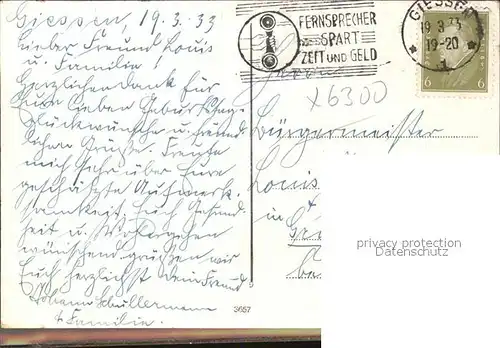 Giessen, 19.3.33
Lieber Freund Louis
u. Familie!
Herzlichen Dank für
Eure lieben Geburtstag-
Glückwünsche u. freund-
lichen Grüße. Freute
mich sehr über Eure
geschätzte Aufmerk-
samkeit. Euch Gesund-
heit u. Wohlergehen
wünschend grüßen wir
Euch herzlichst Dein Freund
Johann Schüllermann
+ Familie.
FERNSPRECHER
SPART
ZEIT UND GELD
GIESSEN
19.3.33
19-20
1
6 6
X6300
Bürgermeister
Louis
in
privacy protection
Datenschutz
3657